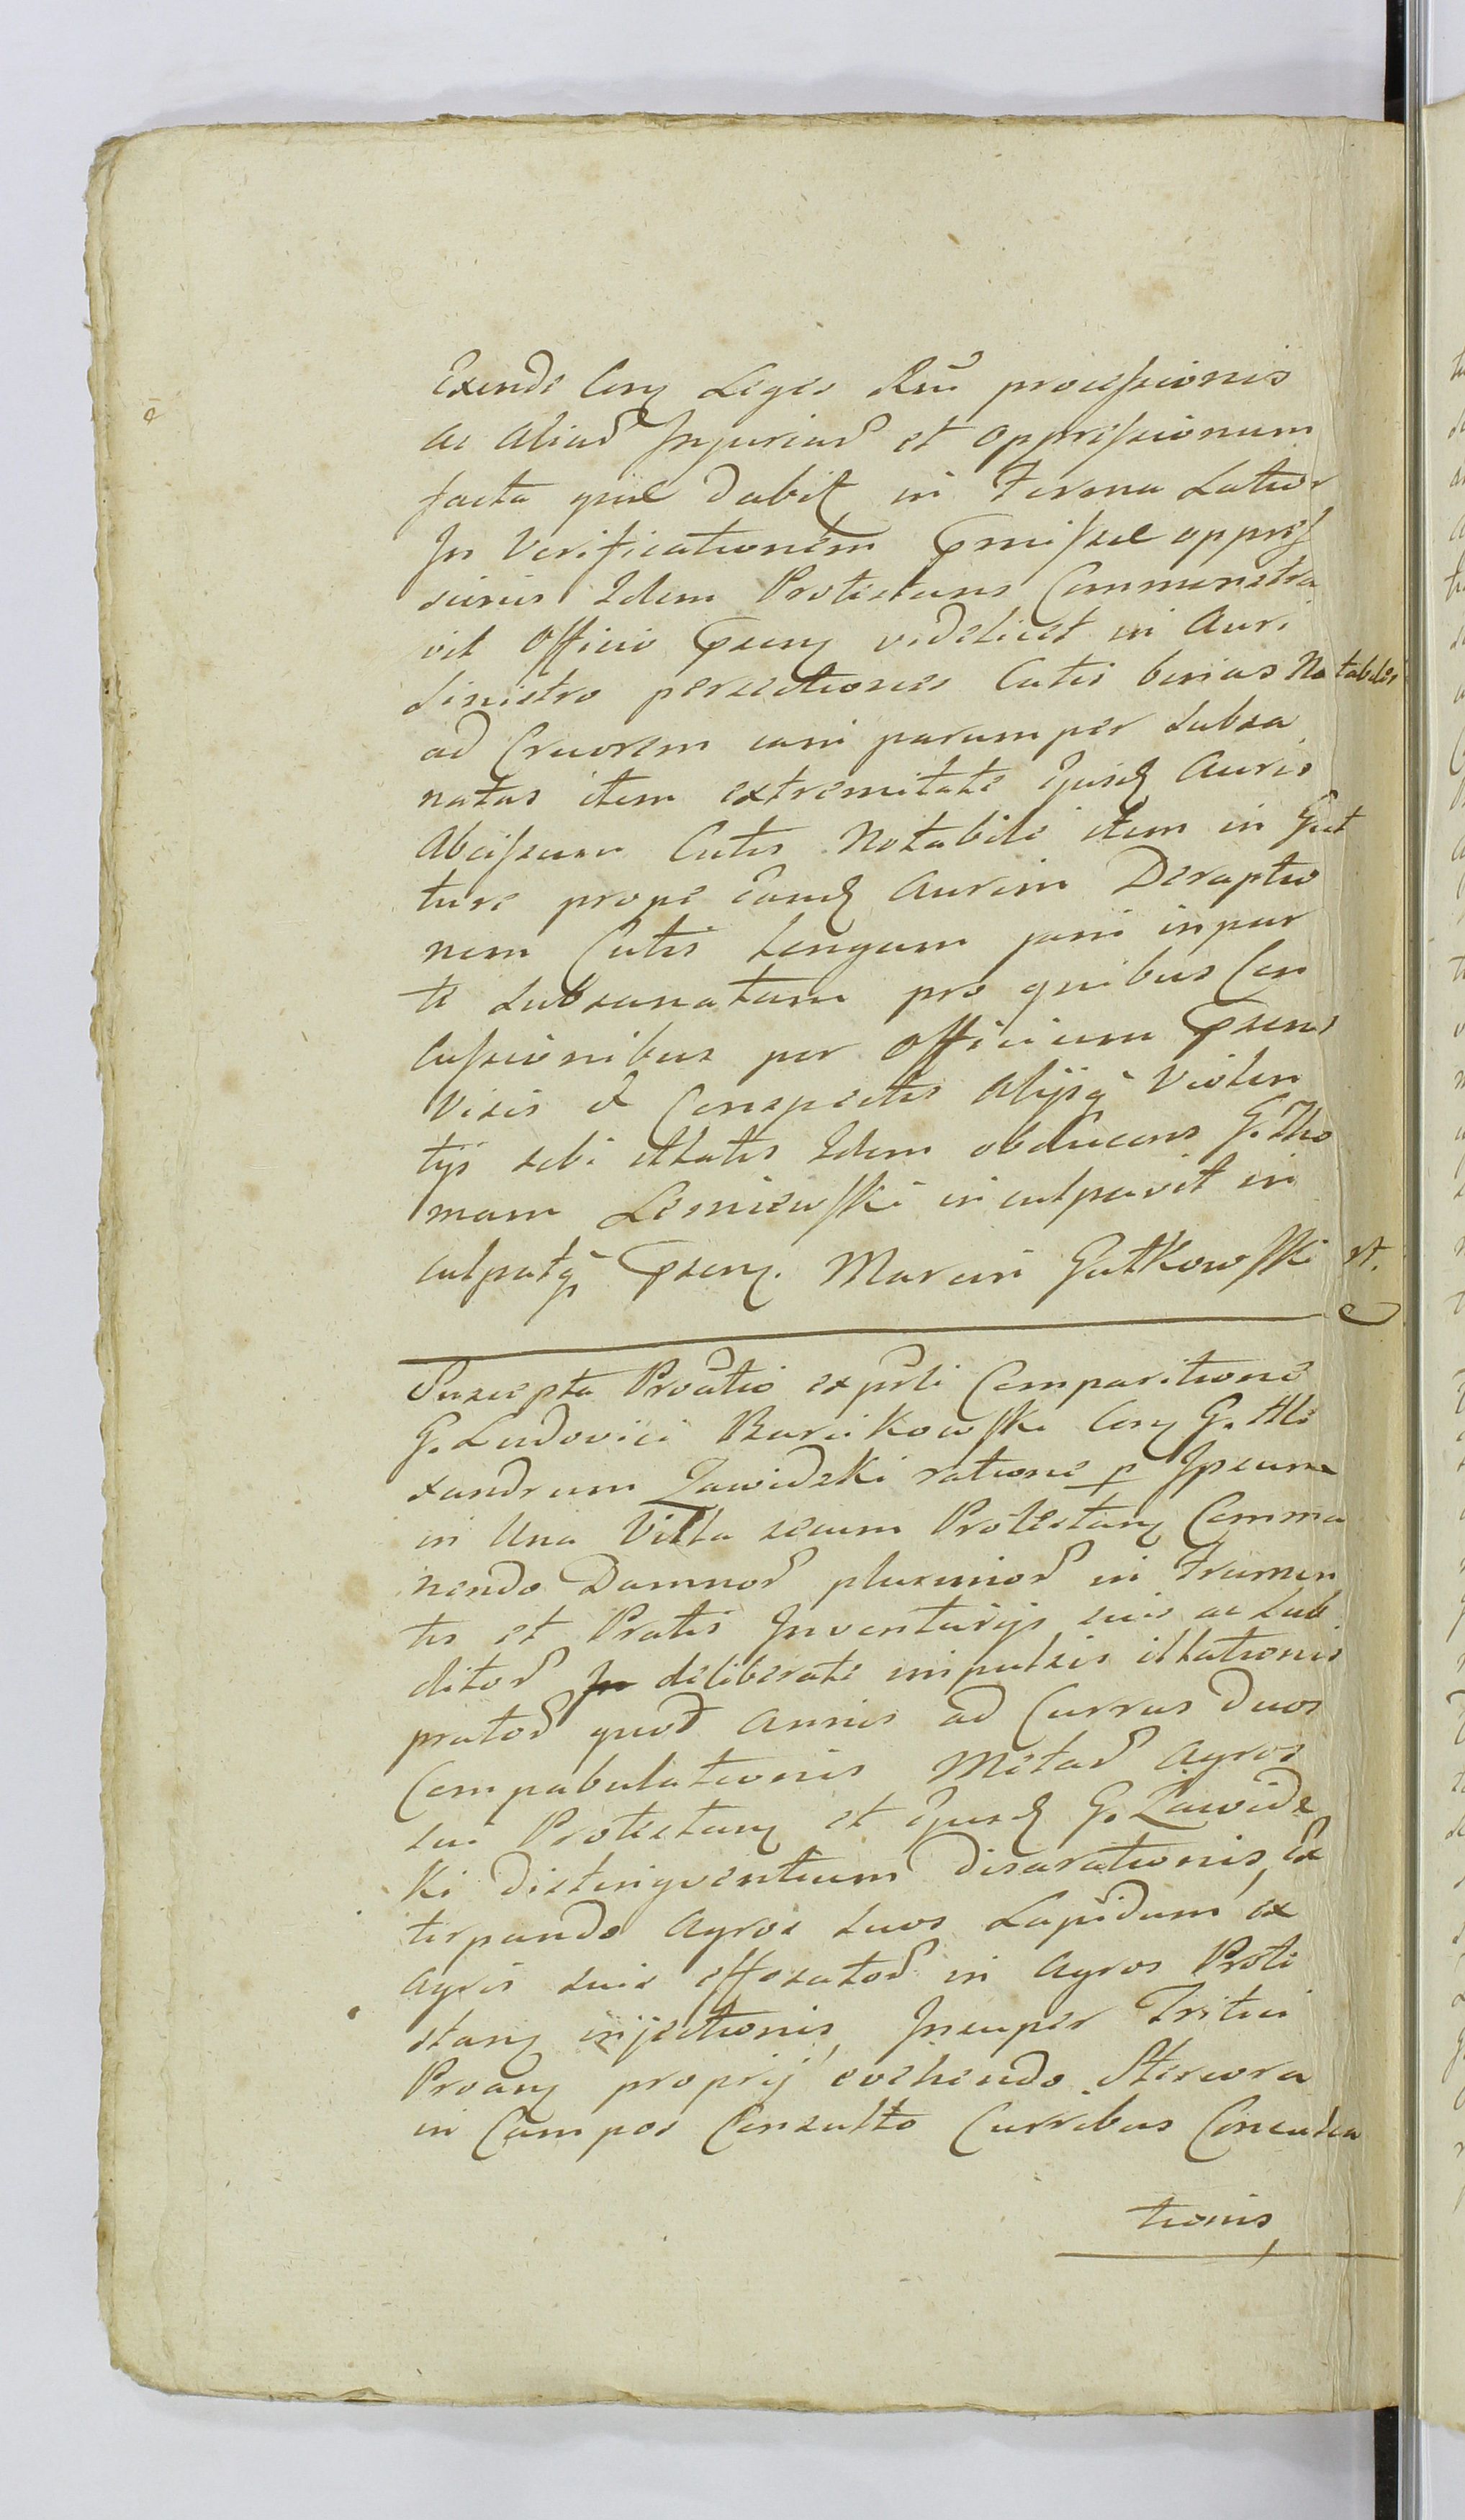 Exinde Con̄ Leges Rm̄ processionis
ac aliar̄ Injuriar̄ et oppressionum
facta quae dabit̄ in Termo Latior
In Verificationem Praemissae oppres
sionis Idem Protestans Commonstra
vit Officio Praesen̄ videlicet in Auri
sinistro persectiones Cutis binas Notabiles
ad Cruorem iam parumper subsa
natas item extremitate Ejusd̄ Auris
Abcissum Cutis Notabile item in Gut
ture prope Eand̄ Aurim Deraptio
nem Cutis Longam jam in par
te subsanatam pro quibus Con
cussionibus per Officium Praesens
Visis et Conspectis Alijsq̄ Violen
tijs sibi illatis Idem obducens G. Tho
mam Lesniewski inculpavit in
culpatq̄ Praesen̄. Marcin Gutkowski
Suscepta Prōtio ex prti Comparitione
G. Ludovici Barcikowski Con̄ G. Ale
xandrum Zawidzki ratione p Ipsum
in Una Villa secum Protestan̄ Comma
nendo Damnor̄ plurimor̄ in Frumen
tis et Pratis Inventarijs suis ac Sub
ditor̄ deliberate impulsis illationis
prator̄ quot annis ad Currus Duos
Compabulationis Metar̄ Agros
sui Protestan̄ et Ejusd̄ G. Zawidz
ki distingventium disarationis, Ex
tirpando Agros suos Lapidum ex
agris suis effosator̄ in Agros Prote
stan̄ injectionis, Insuper Tritici
Proan̄ proprij evehendo Stercora
in Campos Consulto Curribus Conculca
tionis,